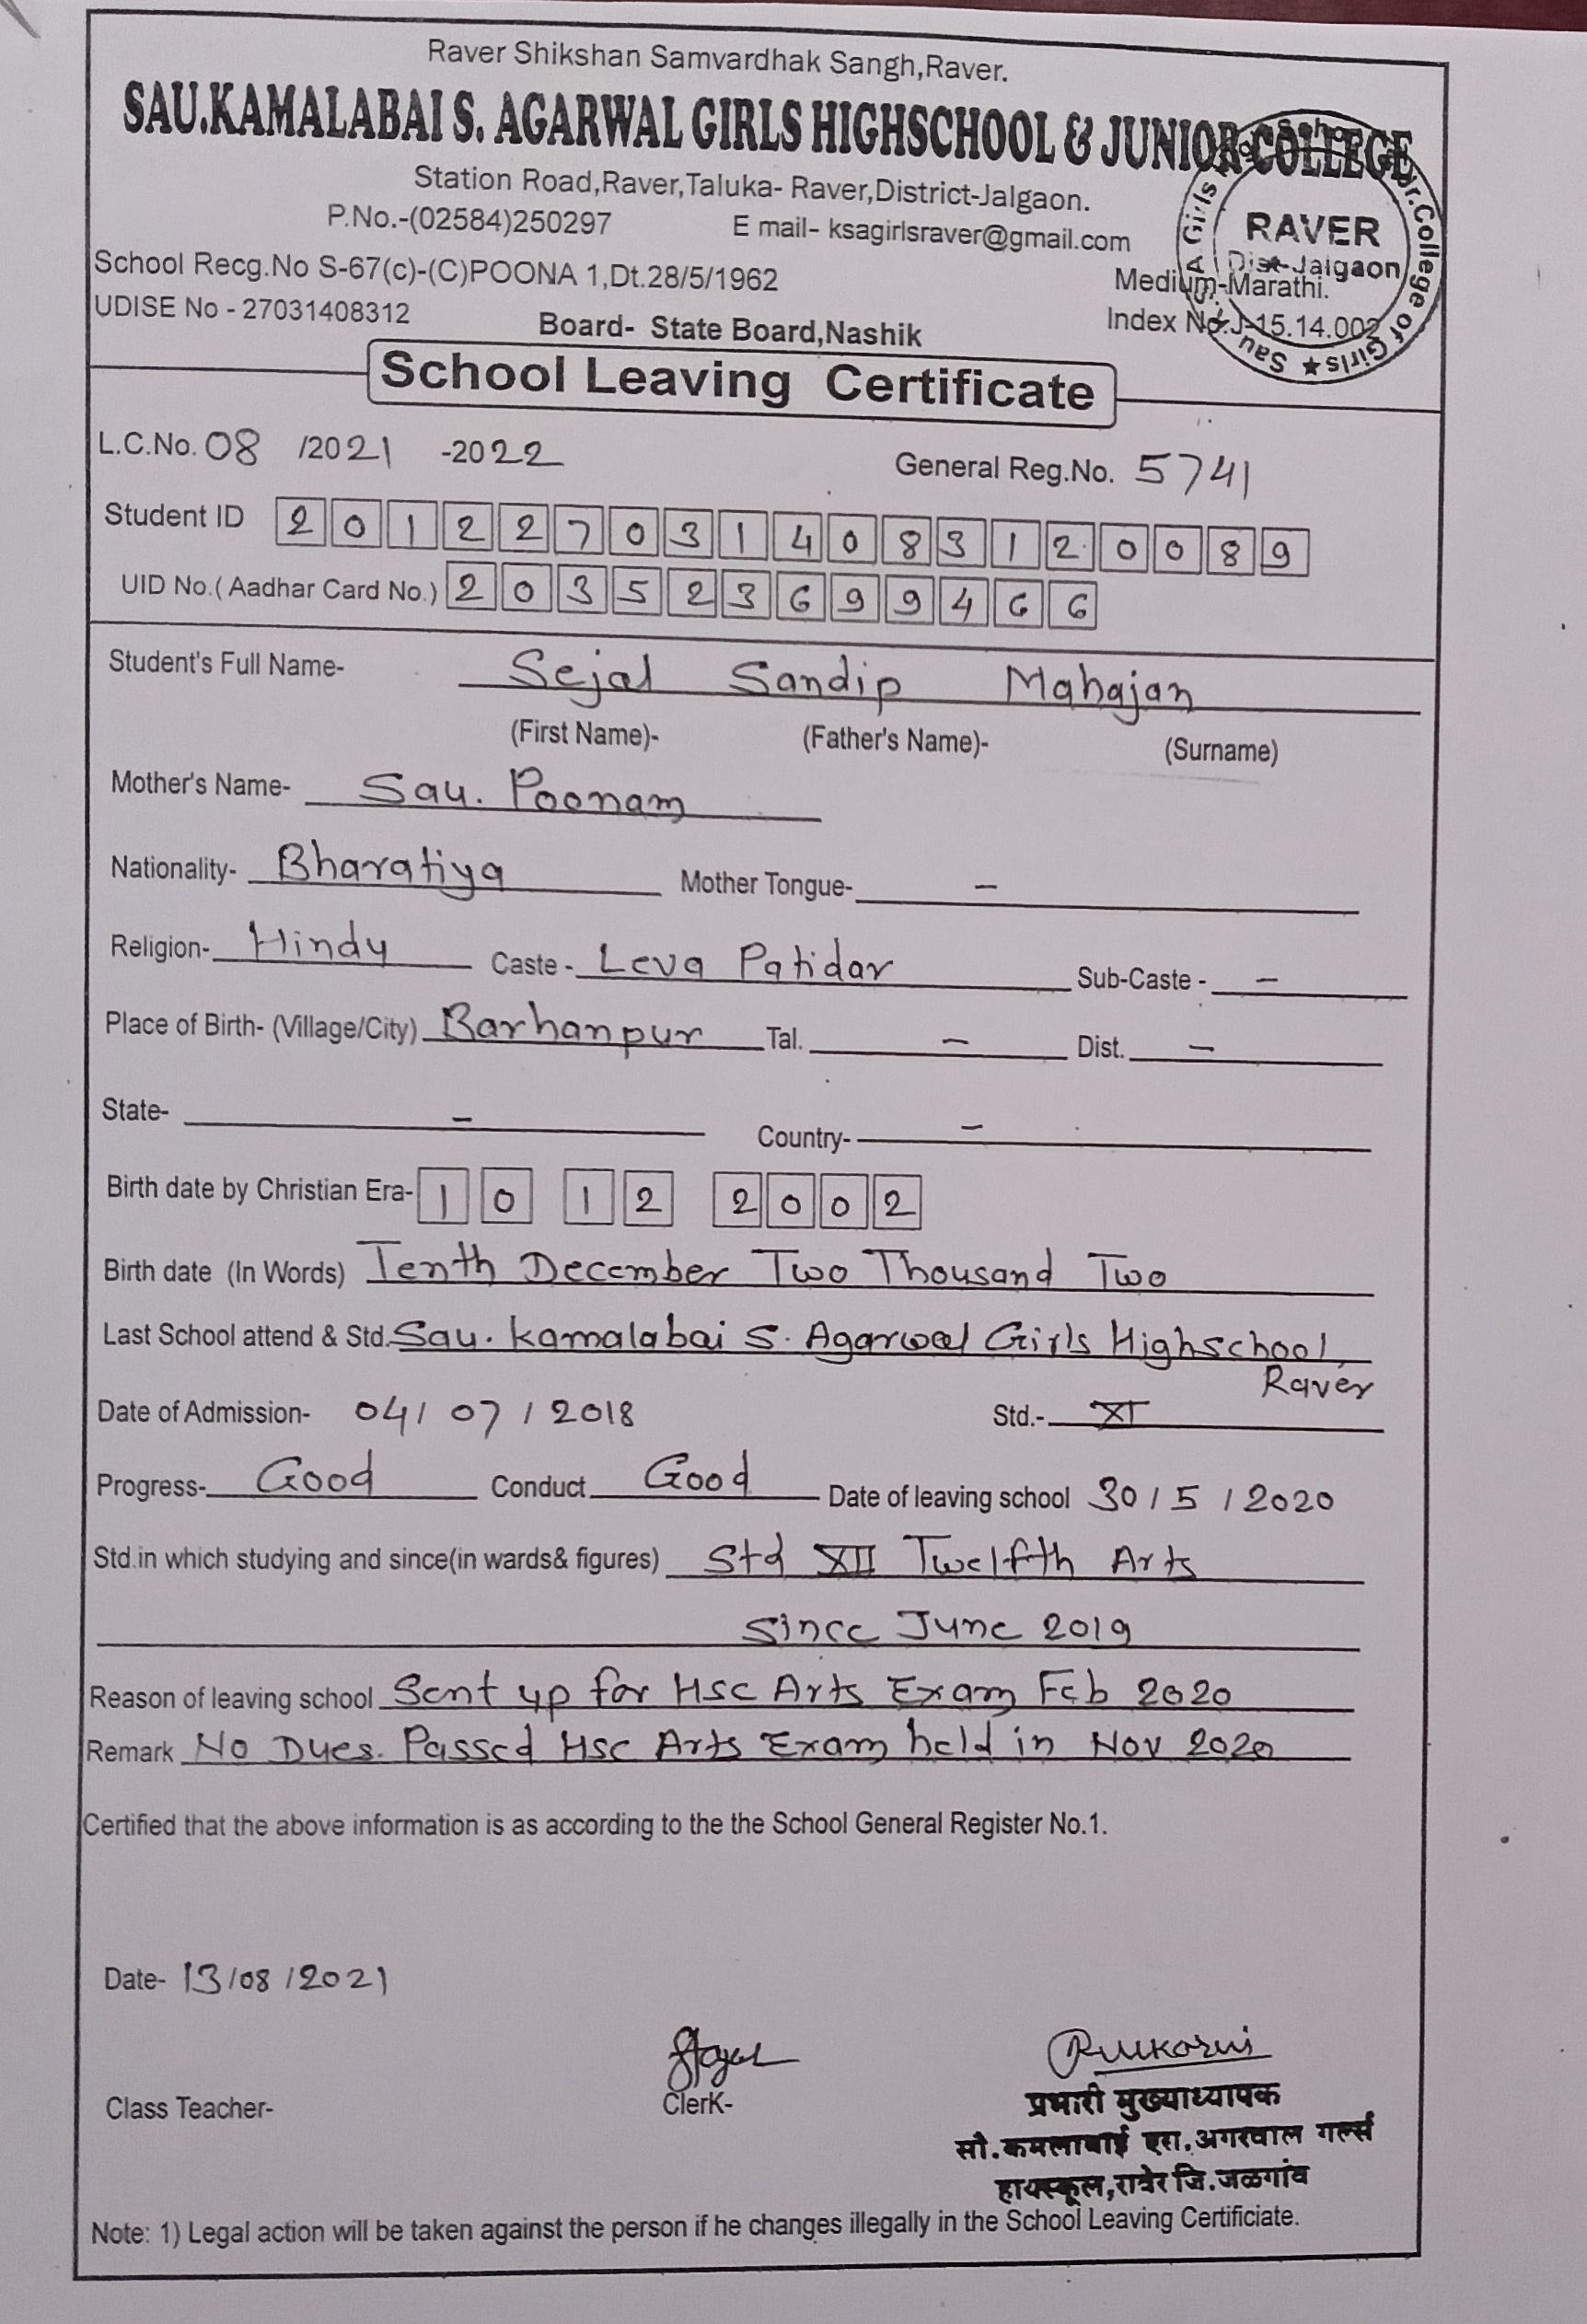 Raver Shikshan Samvardhak Sangh,Raver.
SAU.KAMALABAI S. AGARWAL GIRLS HIGHSCHOOL & JUNIOR COLLEGE
Station Road,Raver,Taluka- Raver,District-Jalgaon.
P.No.-(02584)250297 E mail- ksagirlsraver@gmail.com
School Recg.No S-67(c)-(C)POONA 1,Dt.28/5/1962 Medium-Marathi.
UDISE No - 27031408312 Board- State Board,Nashik Index No.J-15.14.002
RAVER
Dist-Jalgaon
Jr.College of Girls ★ Sau.
School Leaving Certificate
L.C.No. 08 /2021 -2022 General Reg.No. 5741
Student ID 2012270314083120089
UID No.( Aadhar Card No.) 203523699466
Student's Full Name- Sejal Sandip Mahajan
(First Name)- (Father's Name)- (Surname)
Mother's Name- Sau. Poonam
Nationality- Bharatiya Mother Tongue- –
Religion- Hindu Caste - Leva Patidar Sub-Caste - –
Place of Birth- (Village/City) Barhanpur Tal. – Dist. –
State- – Country- –
Birth date by Christian Era- 10 12 2002
Birth date (In Words) Tenth December Two Thousand Two
Last School attend & Std. Sau. Kamalabai S. Agarwal Girls Highschool,
Raver
Date of Admission- 04/ 07 / 2018 Std.- XI
Progress- Good Conduct Good Date of leaving school 30 / 5 / 2020
Std.in which studying and since(in wards& figures) Std XII Twelfth Arts
Since June 2019
Reason of leaving school Sent up for HSC Arts Exam Feb 2020
Remark No Dues. Passed HSC Arts Exam held in Nov 2020
Certified that the above information is as according to the the School General Register No.1.
Date- 13/08/2021
Class Teacher- ClerK-
प्रभारी मुख्याध्यापक
सौ.कमलाबाई एस.अगरवाल गर्ल्स
हायस्कूल,रावेर जि.जळगांव
Note: 1) Legal action will be taken against the person if he changes illegally in the School Leaving Certificiate.